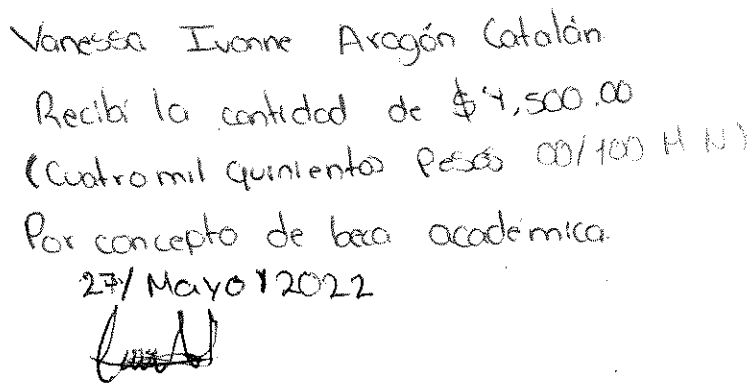 Vanessa Ivonne Aragón Catalán
Recibí la cantidad de $4,500.00
(Cuatro mil quinientos Pesos 00/100 M N)
Por concepto de beca académica.
27/Mayo/2022